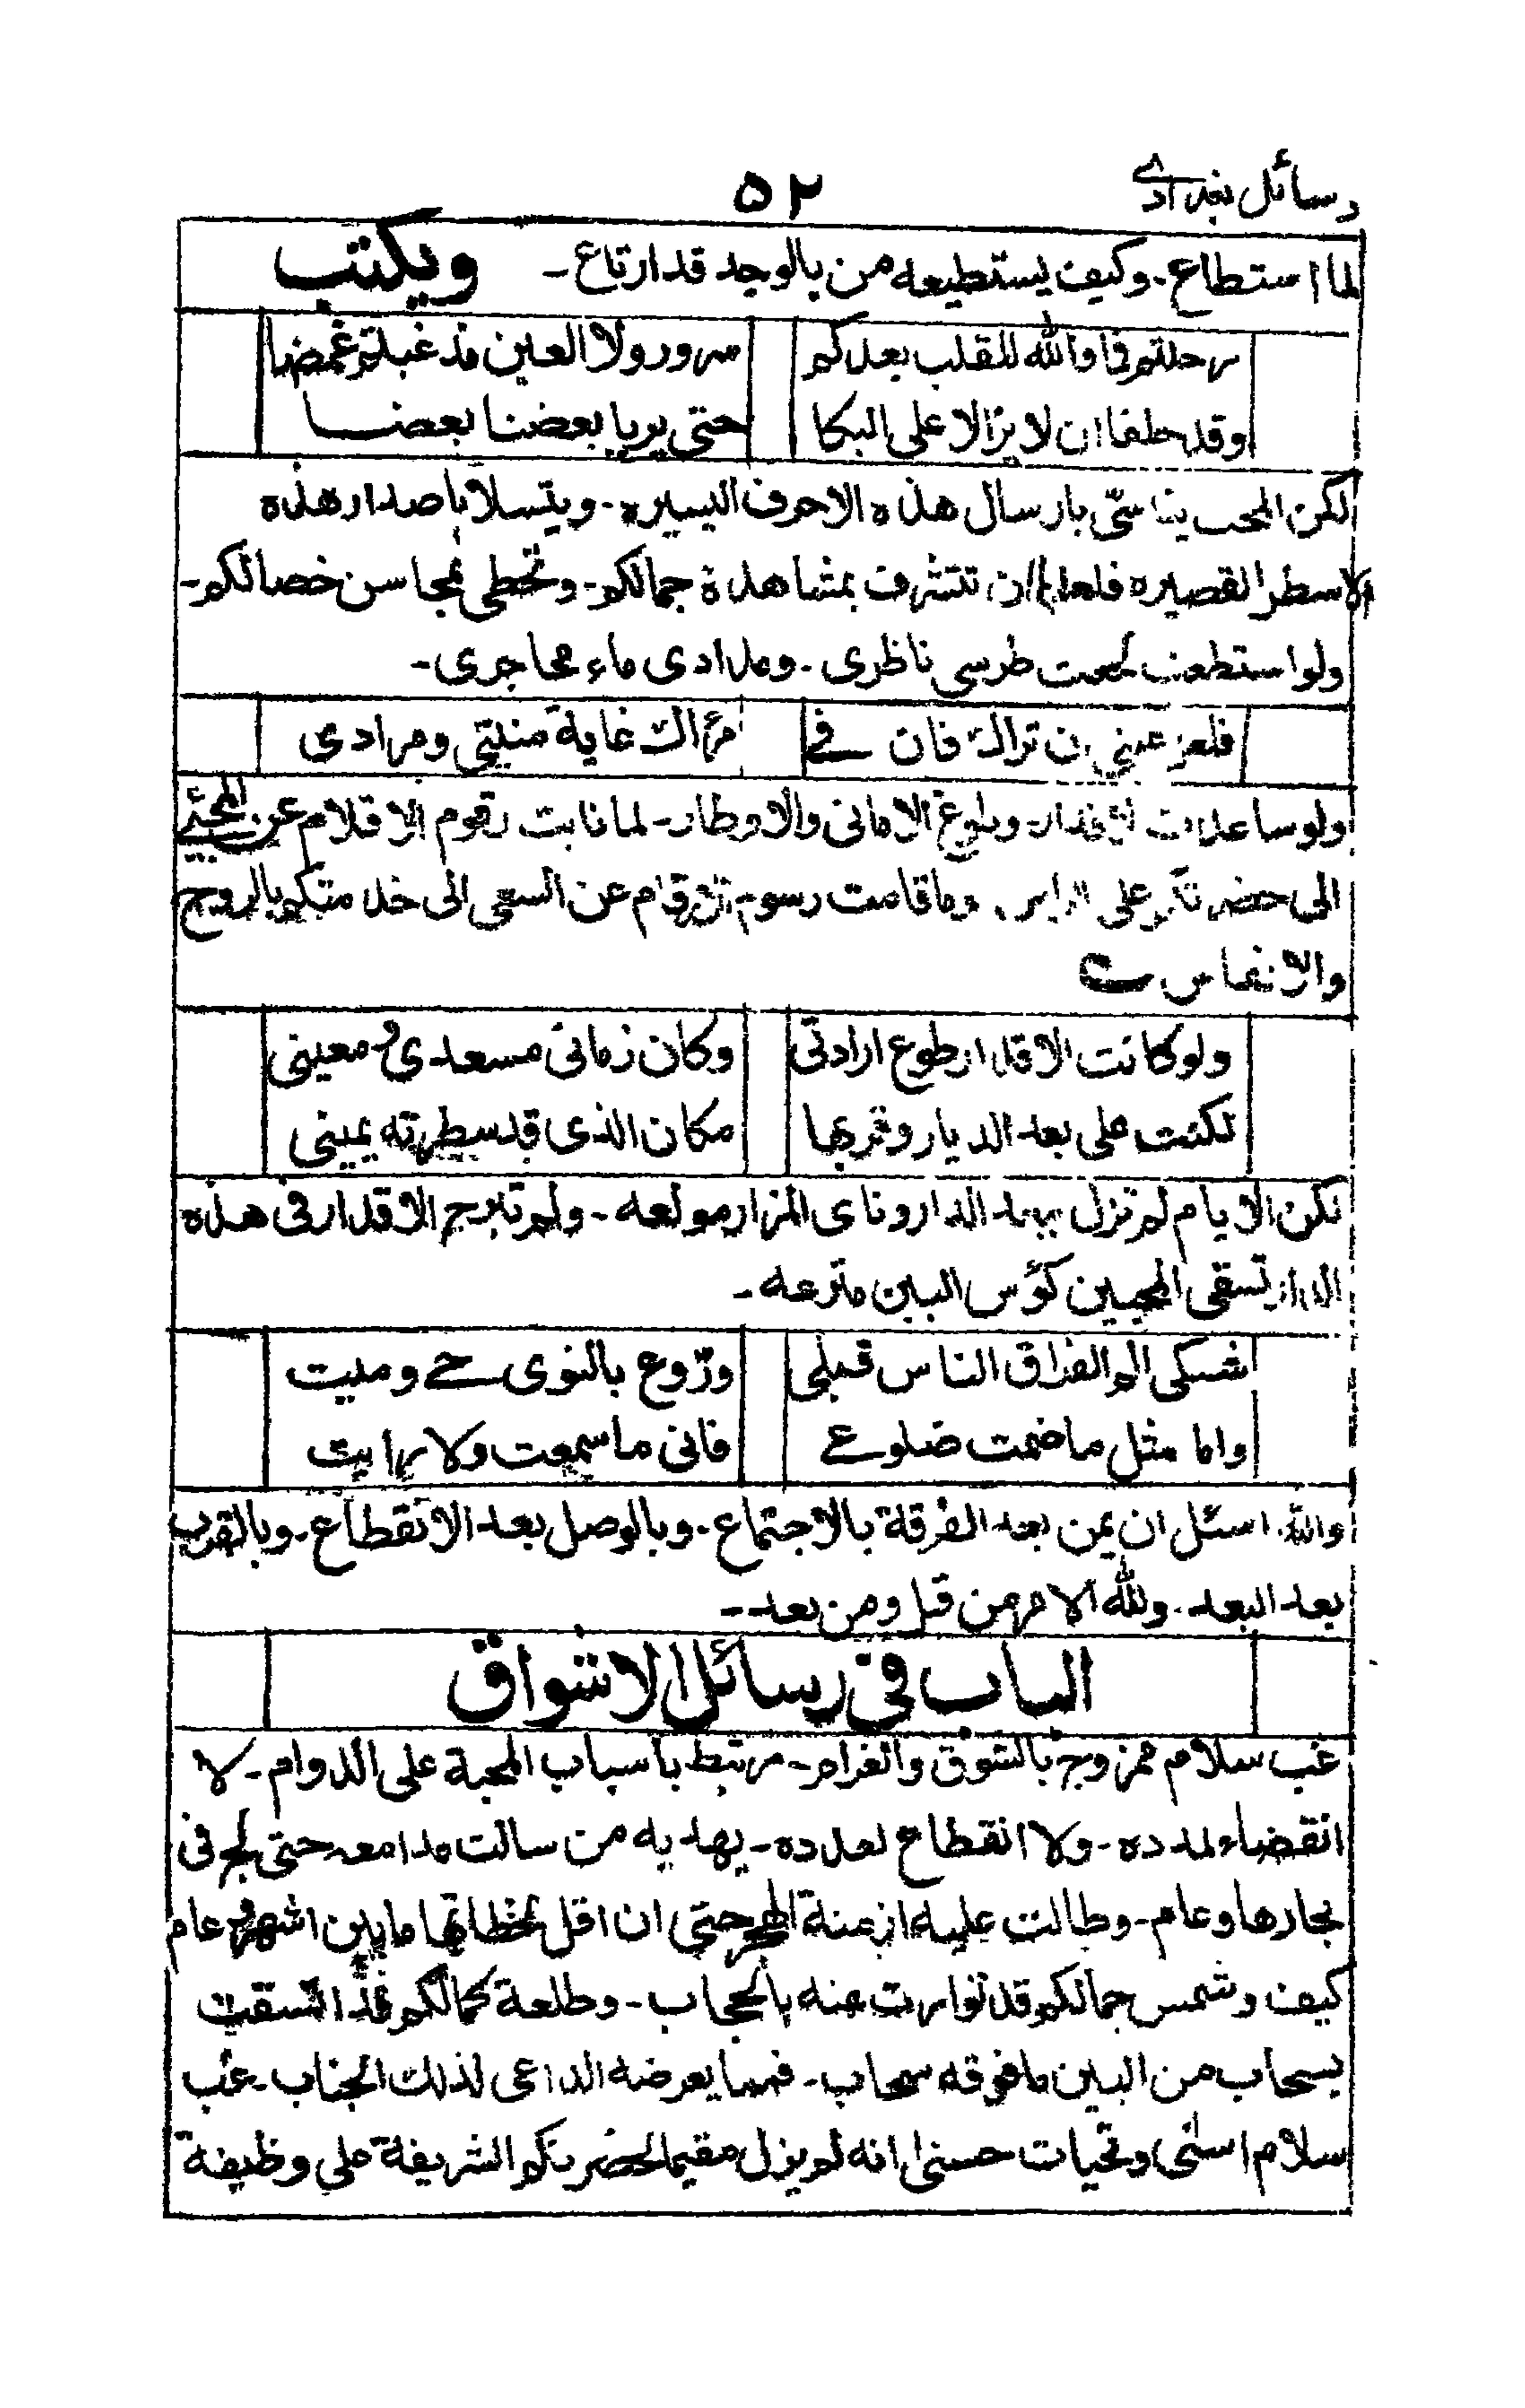 رسائل بغدادي
٥٢
لما استطاع - وكيف يستطيعه من بالوجد قد ارتاع - ويكتب
رحلتم فما والله للقلب بعدكم سرور ولا العين مذ غبتم غمضا
وقد حلفا ان لا يزالا على البكا حتى يريا بعضنا بعضا
لكن المحب يتاسّى بارسال هذه الاحرف اليسيره - ويتسلا باصدار هذه
الاسطر القصيره فلعلها ان تتشرف بمشاهدة جمالكم - وتحظى بمحاسن خصالكم -
ولو استطعت لجعلت طرسي ناظرى - ومدادى ماء محاجرى -
فلعل عيني ان تراك فان في مرآك غاية منيتي ومرادى
ولو ساعدت الاقدار - وبلوغ الامانى والاوطار - لما نابت رقوم الاقلام عن المجئي
الى حضرتكم على الراس - وما قامت رسوم الارقام عن السعى الى خدمتكم بالروح
والانفاس ؎
ولو كانت الاقدار طوع ارادتى وكان زمانى مسعدي ومعينى
لكنت على بعد الديار وقربها مكان الذى قد سطرته يمينى
لكن الايام لم تزل ببعد الدار وناى المزار مولعه - ولم تبرح الاقدار فى هذه
الدار تسقى المحبين كؤس البين مترعه -
شكى الم الفراق الناس قبلي وروّع بالنوى حي وميت
واما مثل ما ضمت ضلوعي فانى ما سمعت ولا رايت
والله اسئل ان يمن بعد الفرقة بالاجتماع - وبالوصل بعد الانقطاع - وبالقرب
بعد البعد - ولله الامر من قبل ومن بعد --
الباب فى رسائل الاشواق
غب سلام ممزوج بالشوق والغرام - مرتبط باسباب المحبة على الدوام - لا
انقضاء لمدده - ولا انقطاع لعدده - يهديه من سالت مدامعه حتى لج فى
بحارها وعام - وطالت عليه ازمنة الهجر حتى ان اقل لحظاتها ما بين اشهر وعام
كيف وشمس جمالكم قد توارت عنه بالحجاب - وطلعة كمالكم قد اتسقت
بسحاب من البين ما فوقه سحاب - فمما يعرضه الداعى لذلك الجناب - غب
سلام اسنى وتحيات حسنى انه لم يزل مقيما لحضرتكم الشريفة على وظيفة